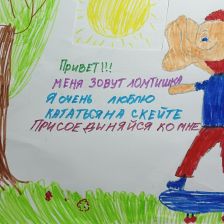 ПРИВЕТ!!!
МЕНЯ ЗОВУТ ЛОМТИШКА
Я ОЧЕНЬ ЛЮБЛЮ
КАТАТЬСЯ НА СКЕЙТЕ
ПРИСОЕДИНЯЙСЯ КО МНЕ